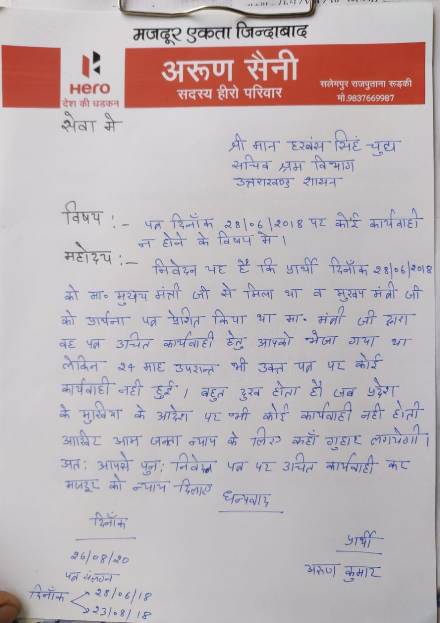 मजदूर एकता जिन्दाबाद
Hero
देश की धडकन
अरूण सैनी
सदस्य हीरो परिवार
सलेमपुर राजपुताना रूडकी
मो.9837669987
सेवा मे
श्री मान हरबंस सिहं चुघ
सचिव श्रम विभाग
उत्तराखण्ड शासन
विषय :- पत्र दिनाँक 28/06/2018 पर कोई कार्यवाही
न होने के विषय मे।
महोदय :-
निवेदन यह है कि प्रार्थी दिनाँक 28/06/2018
को मा० मुख्य मंत्री जी से मिला था व मुख्य मंत्री जी
को प्रार्थना पत्र प्रेषित किया था मा० मंत्री जी द्वारा
वह पत्र उचित कार्यवाही हेतु आपको भेजा गया था
लेकिन 24 माह उपरान्त भी उक्त पत्र पर कोई
कार्यवाही नही हुई। बहुत दुख होता है जब प्रदेश
के मुखिया के आदेश पर भी कोई कार्यवाही नही होती
आखिर आम जनता न्याय के लिए कहाँ गुहार लगायेगी।
अतः आपसे पुनः निवेदन पत्र पर उचित कार्यवाही कर
मजदूर को न्याय दिलाए
धन्यवाद
दिनाँक
26/08/20
पत्र संलग्न
दिनाँक 28/06/18
23/08/18
प्रार्थी
अरूण कुमार